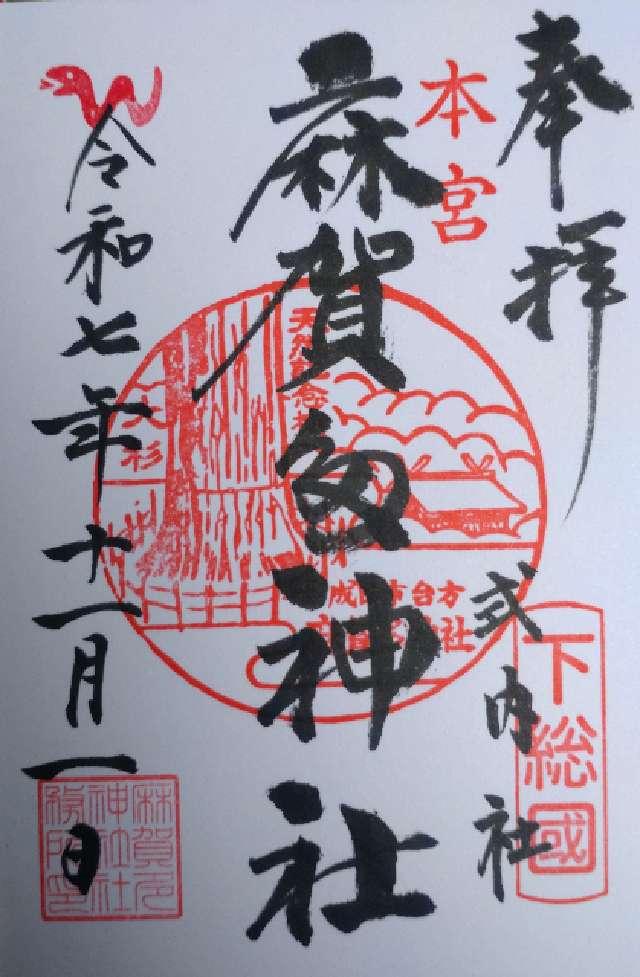 奉拝
式内社
下総國
本宮
麻賀多神社
天然記念
大杉
成田市台方
令和七年十一月一日
麻賀多
神社社
務所印